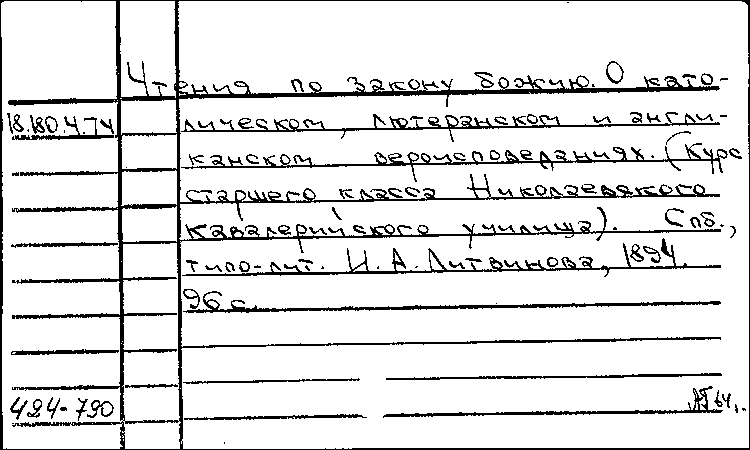 Чтения по закону божию. О като-
18.180.4.74 лическом, лютеранском и англи-
канском вероисповеданиях. (Курс
старшего класса Николаевского
Кавалерийского училища). Спб.,
типо-лит. И. А. Литвинова, 1894.
96 с.
424-790